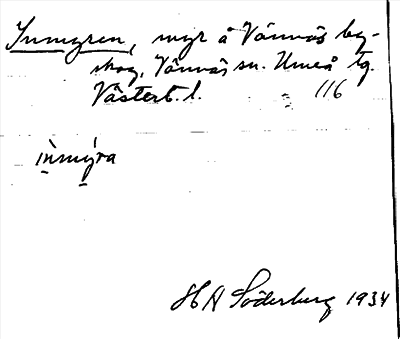 Inmyren, myr å Vännäs by-
skog, Vännäs sn. Umeå tg.
Västerb. l. 116
ìnmý̱ra
H A Söderberg 1934